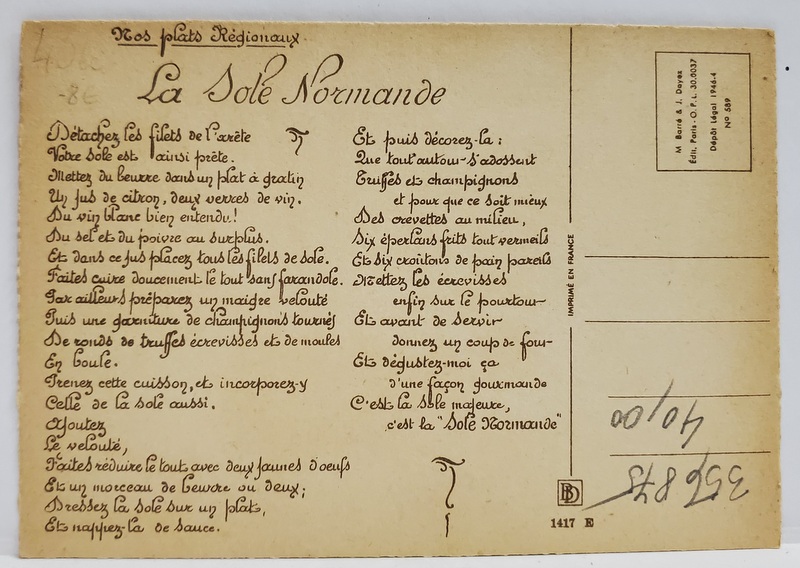 Nos plats Régionaux
La Sole Normande
Détachez les filets de l'arête
Votre sole est ainsi prête.
Mettez du beurre dans un plat à gratin
Un jus de citron, deux verres de vin.
Du vin blanc bien entendu!
Du sel et du poivre au surplus.
Et dans ce jus placez tous les filets de sole.
Faites cuire doucement le tout sans farandole.
Par ailleurs préparez un maigre velouté
Puis une garniture de champignons tournés
De ronds de truffes écrevisses et de moules
En boule.
Prenez cette cuisson, et incorporez-y
Celle de la sole aussi.
Ajoutez
Le velouté,
Faites réduire le tout avec deux jaunes d'oeufs
Et un morceau de beurre ou deux;
Dressez la sole sur un plat,
Et nappez-la de sauce.
Et puis décorez-la :
Que tout autour s'adossent
Truffes et champignons
et pour que ce soit mieux
Des crevettes au milieu,
Six éperlans frits tout vermeils
Et six croûtons de pain pareils
Mettez les écrevisses
enfin sur le pourtour
Et avant de servir
donnez un coup de four
Et dégustez-moi ça
d'une façon gourmande
C'est la sole majeure,
c'est la "Sole Normande"
IMPRIMÉ EN FRANCE
M Barré & J. Dayez
Édit. Paris - O.P.L. 30.0037
Dépôt Légal 1946-4
No 589
40,00
356 875
BD
1417 E